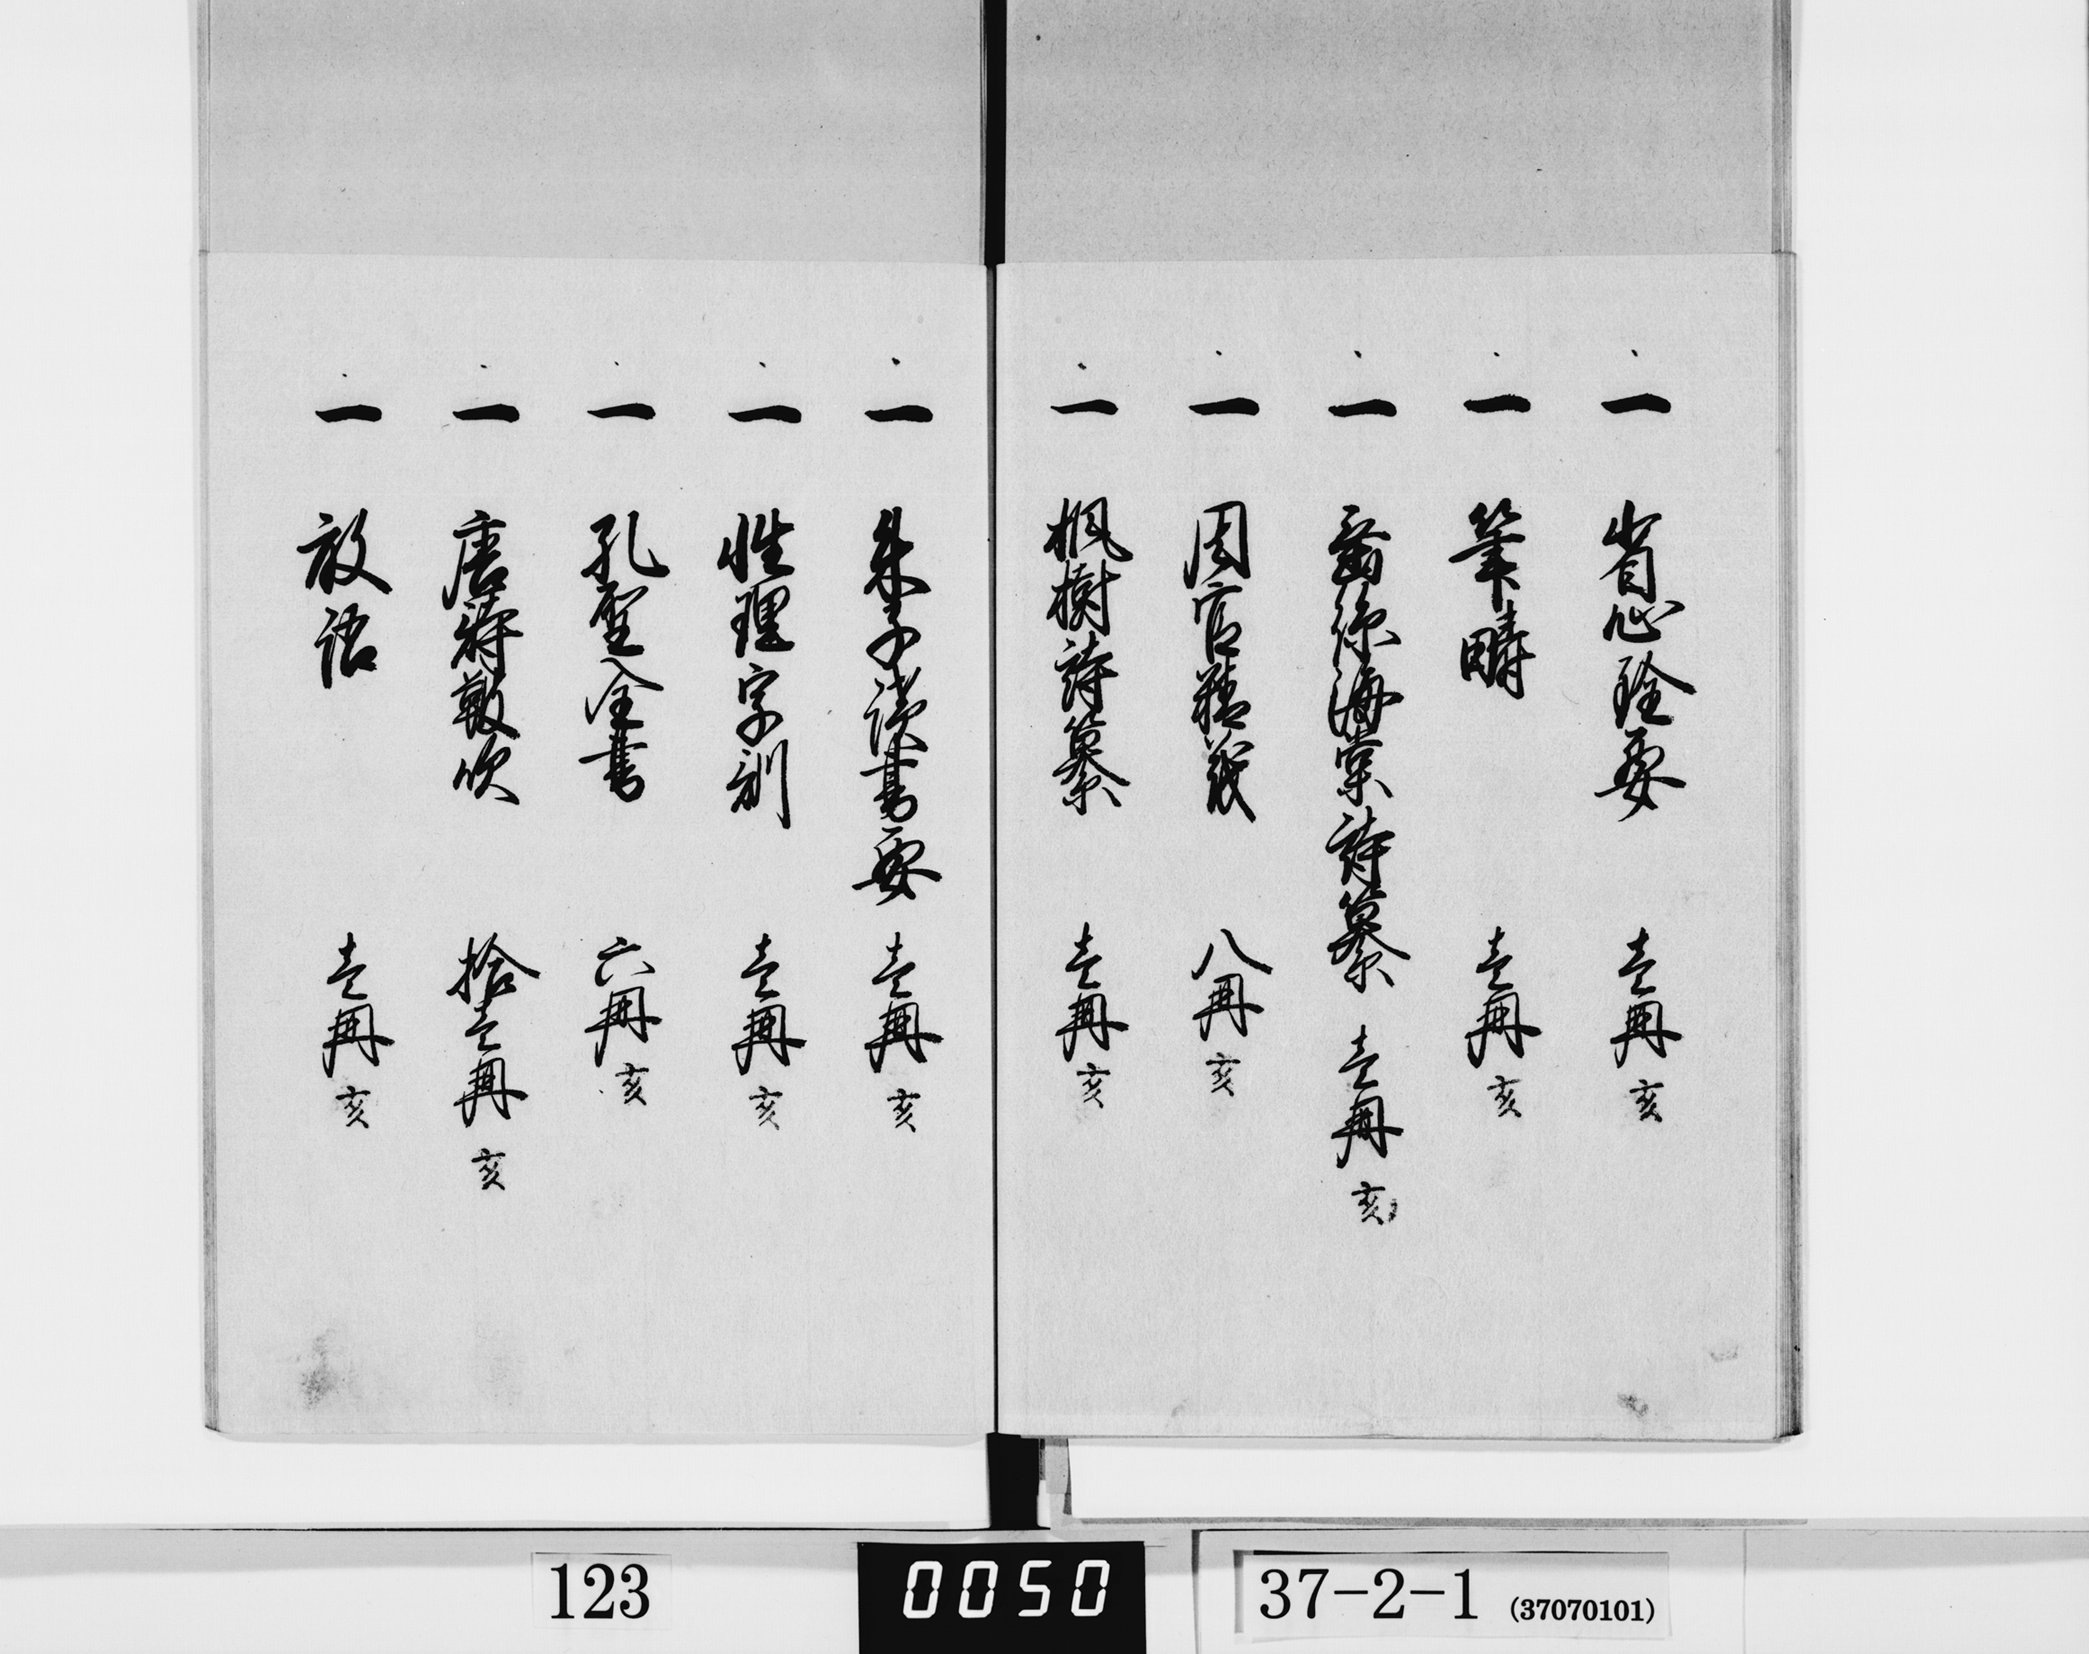 一 省心詮要 壱冊 亥
一 筆疇 壱冊 亥
一 海棠詩纂 壱冊 亥
一 周官精義 八冊 亥
一 楓樹詩纂 壱冊 亥
一 朱子読書要 壱冊 亥
一 性理字訓 壱冊 亥
一 孔聖全書 六冊 亥
一 唐詩鼓吹 拾壱冊 亥
一 放語 壱冊 亥
123
0050
37-2-1 (37070101)